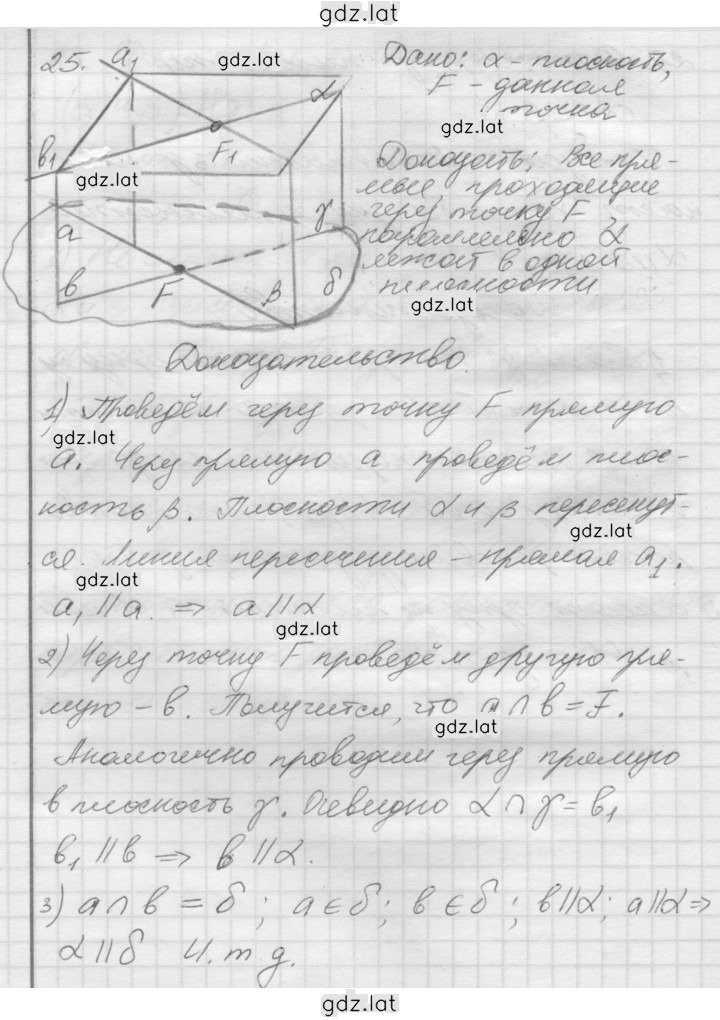 gdz.lat
25. a₁ gdz.lat Дано: α - плоскость,
α F - данная
точка
gdz.lat
в₁ F₁ Доказать: Все пря-
gdz.lat мые, проходящие
через точку F,
a γ параллельно α
лежат в одной
в F β б плоскости
gdz.lat
Доказательство.
1) Проведём через точку F прямую
gdz.lat
a. Через прямую a проведём плос-
кость β. Плоскости α и β пересекут-
gdz.lat
ся. Линия пересечения - прямая a₁.
gdz.lat
a₁ || a. ⇒ a || α
gdz.lat
2) Через точку F проведём другую пря-
мую - в. Получится, что a ∩ в = F.
gdz.lat
Аналогично проводим через прямую
в плоскость γ. Очевидно α ∩ γ = в₁
в₁ || в ⇒ в || α.
3) a ∩ в = б; a ∈ б; в ∈ б; в || α; a || α ⇒
α || б Ч.т.д.
gdz.lat